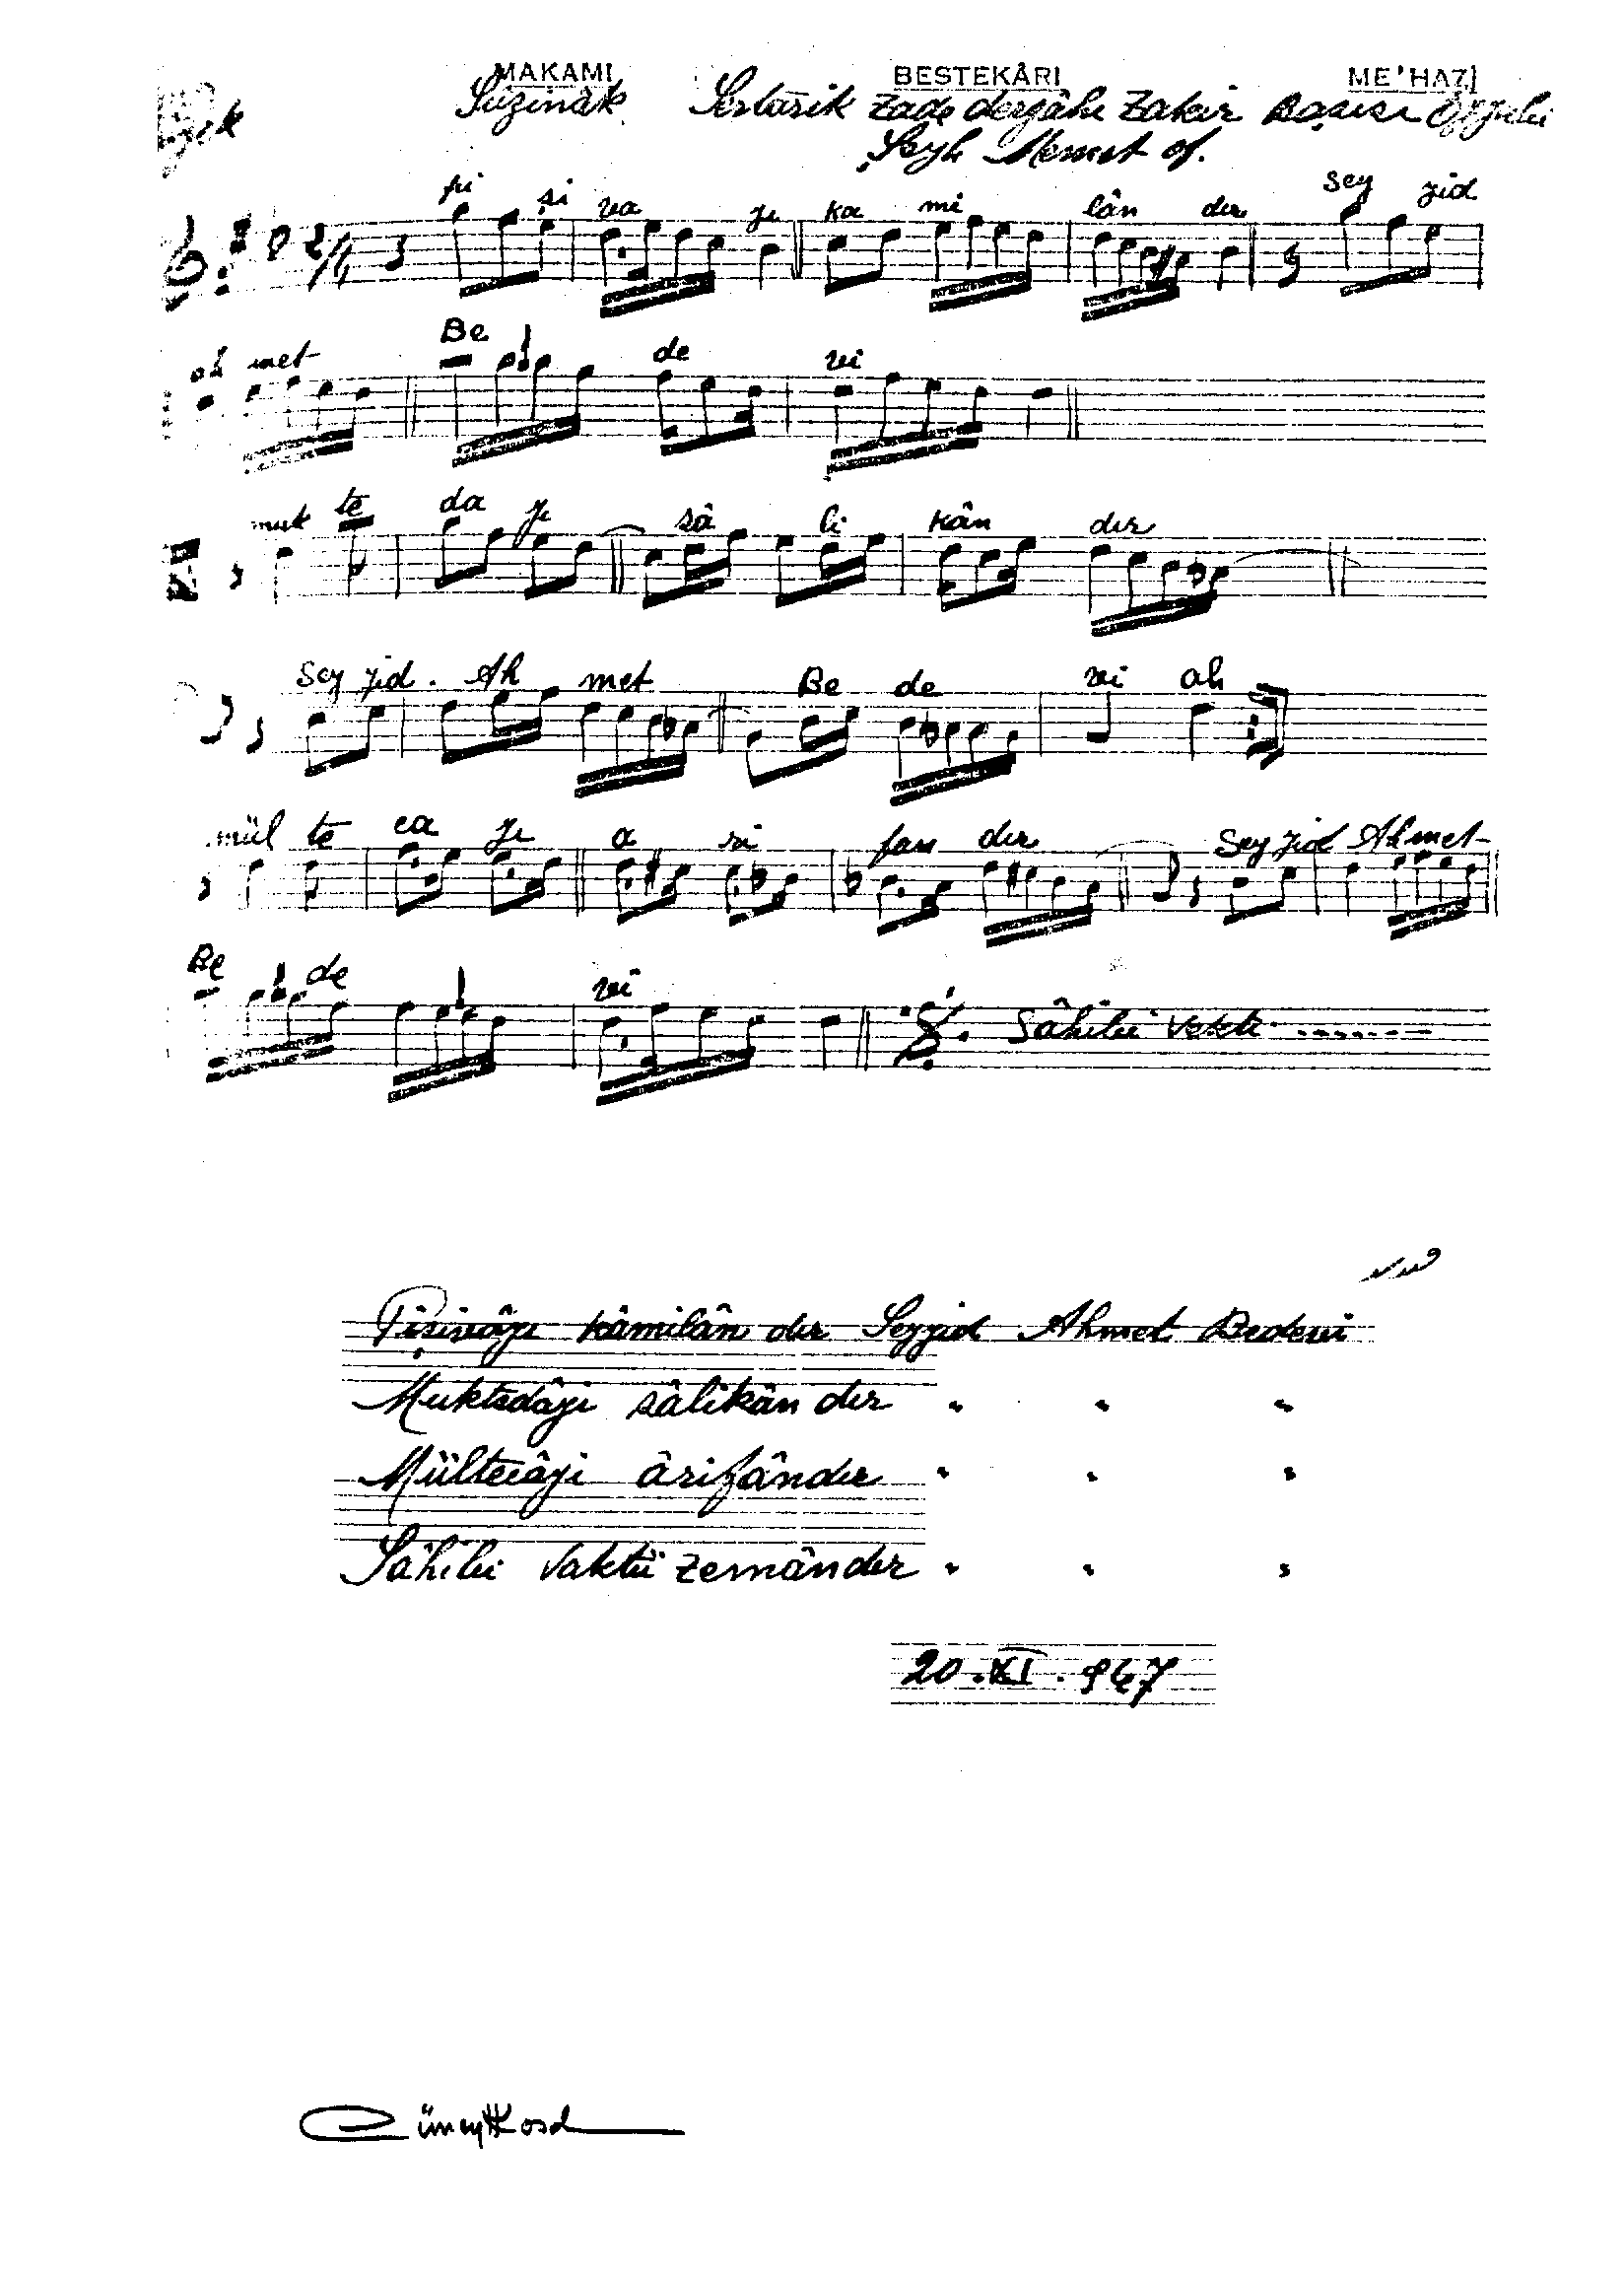 MAKAMI BESTEKÂRI ME'HAZI
Sûzinâk Sertarik zade dergâhı Zakir Başısı
Şeyh Memet ef.
2/4
pi şi va yı kâ mi lân dır Sey yid
ah met Be de vi
muk te da yı sâ li kân dır
Sey yid Ah met Be de vi ah
mül te ca yı a ri fan dır Sey yid Ahmet
Be de vi Sâhibi vakti .......
Pişivâyı kâmilân dır Seyyid Ahmet Bedevi
Muktedâyi sâlikân dır " " "
Mültecâyi ârifândır " " "
Sâhibi vaktü zemândır " " "
20.XI.947
Cüneyt Kosal